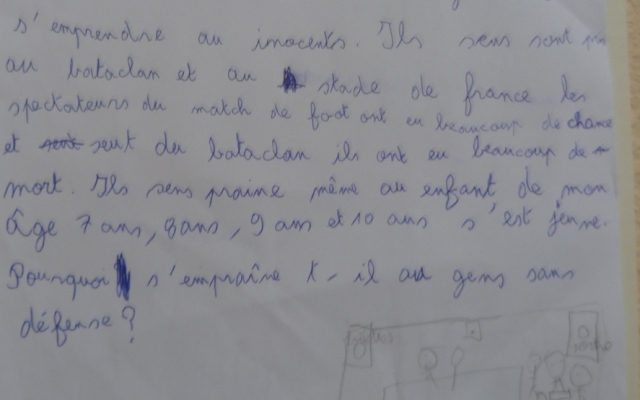 s'emprendre au inocents. Ils sens sont pri
au bataclan et au stade de france les
spectateurs du match de foot ont eu beaucoup de chance
et seut du bataclan ils ont eu beaucoup de
mort. Ils sens praine même au enfant de mon
âge 7 ans, 8 ans, 9 ans et 10 ans s'est jeune.
Pourquoi s'empraîne t-il au gens sans
défense?